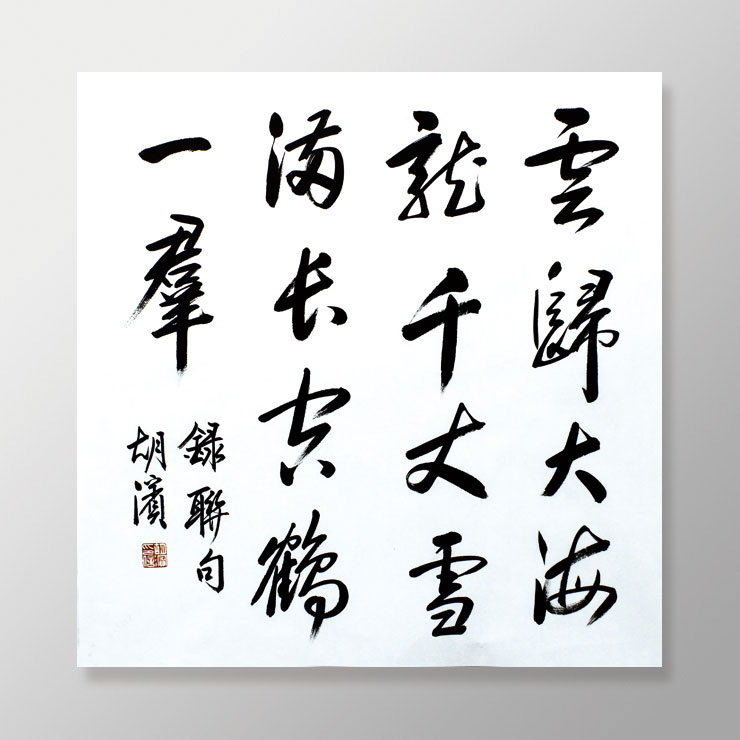 雲歸大海
龍千丈雪
滿長空鶴
一羣
録聯句
胡濱